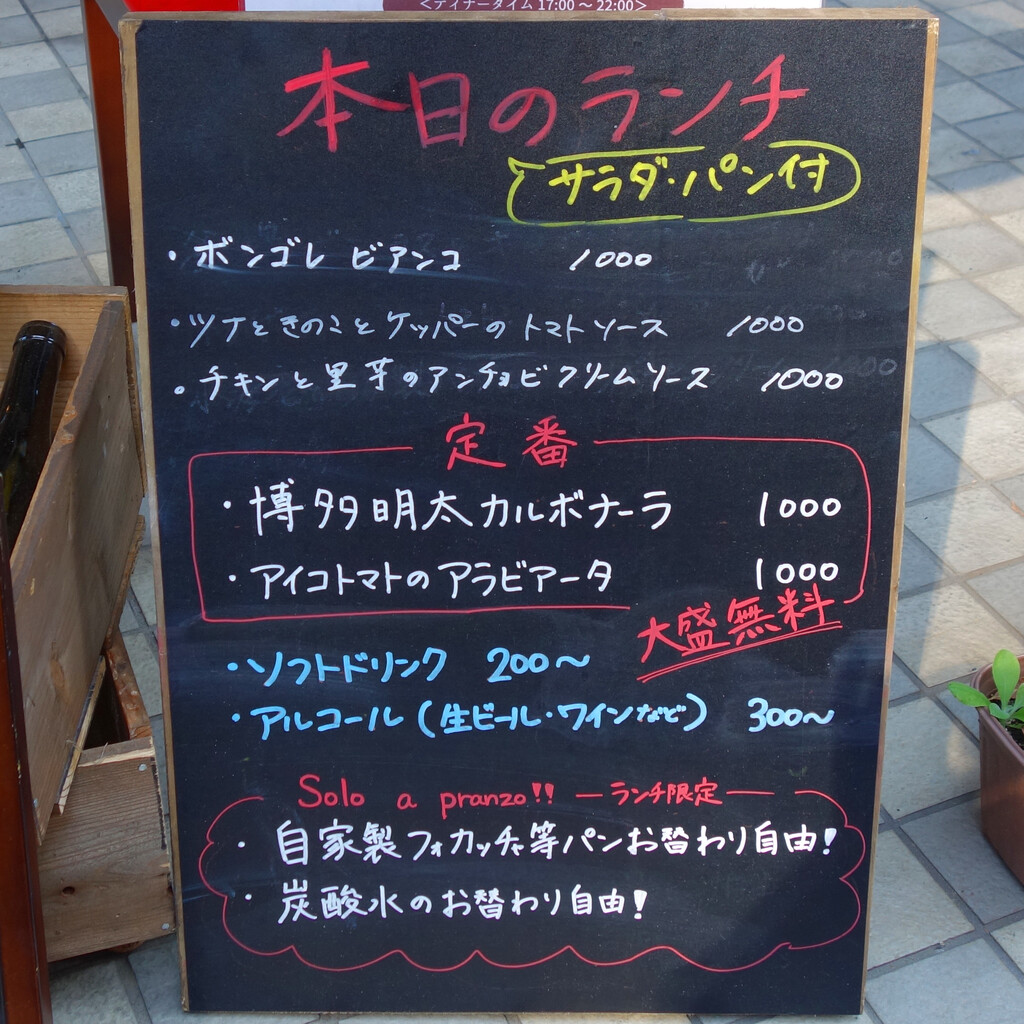 <ディナータイム 17:00 〜 22:00>
本日のランチ
サラダ・パン付
・ボンゴレ ビアンコ 1000
・ツナときのことケッパーのトマトソース 1000
。チキンと里芋のアンチョビクリームソース 1000
定番
・博多明太カルボナーラ 1000
・アイコトマトのアラビアータ 1000
大盛無料
・ソフトドリンク 200〜
・アルコール(生ビール・ワインなど) 300〜
Solo a pranzo!! ―ランチ限定―
・自家製フォカッチャ等パンお替わり自由!
・炭酸水のお替わり自由!